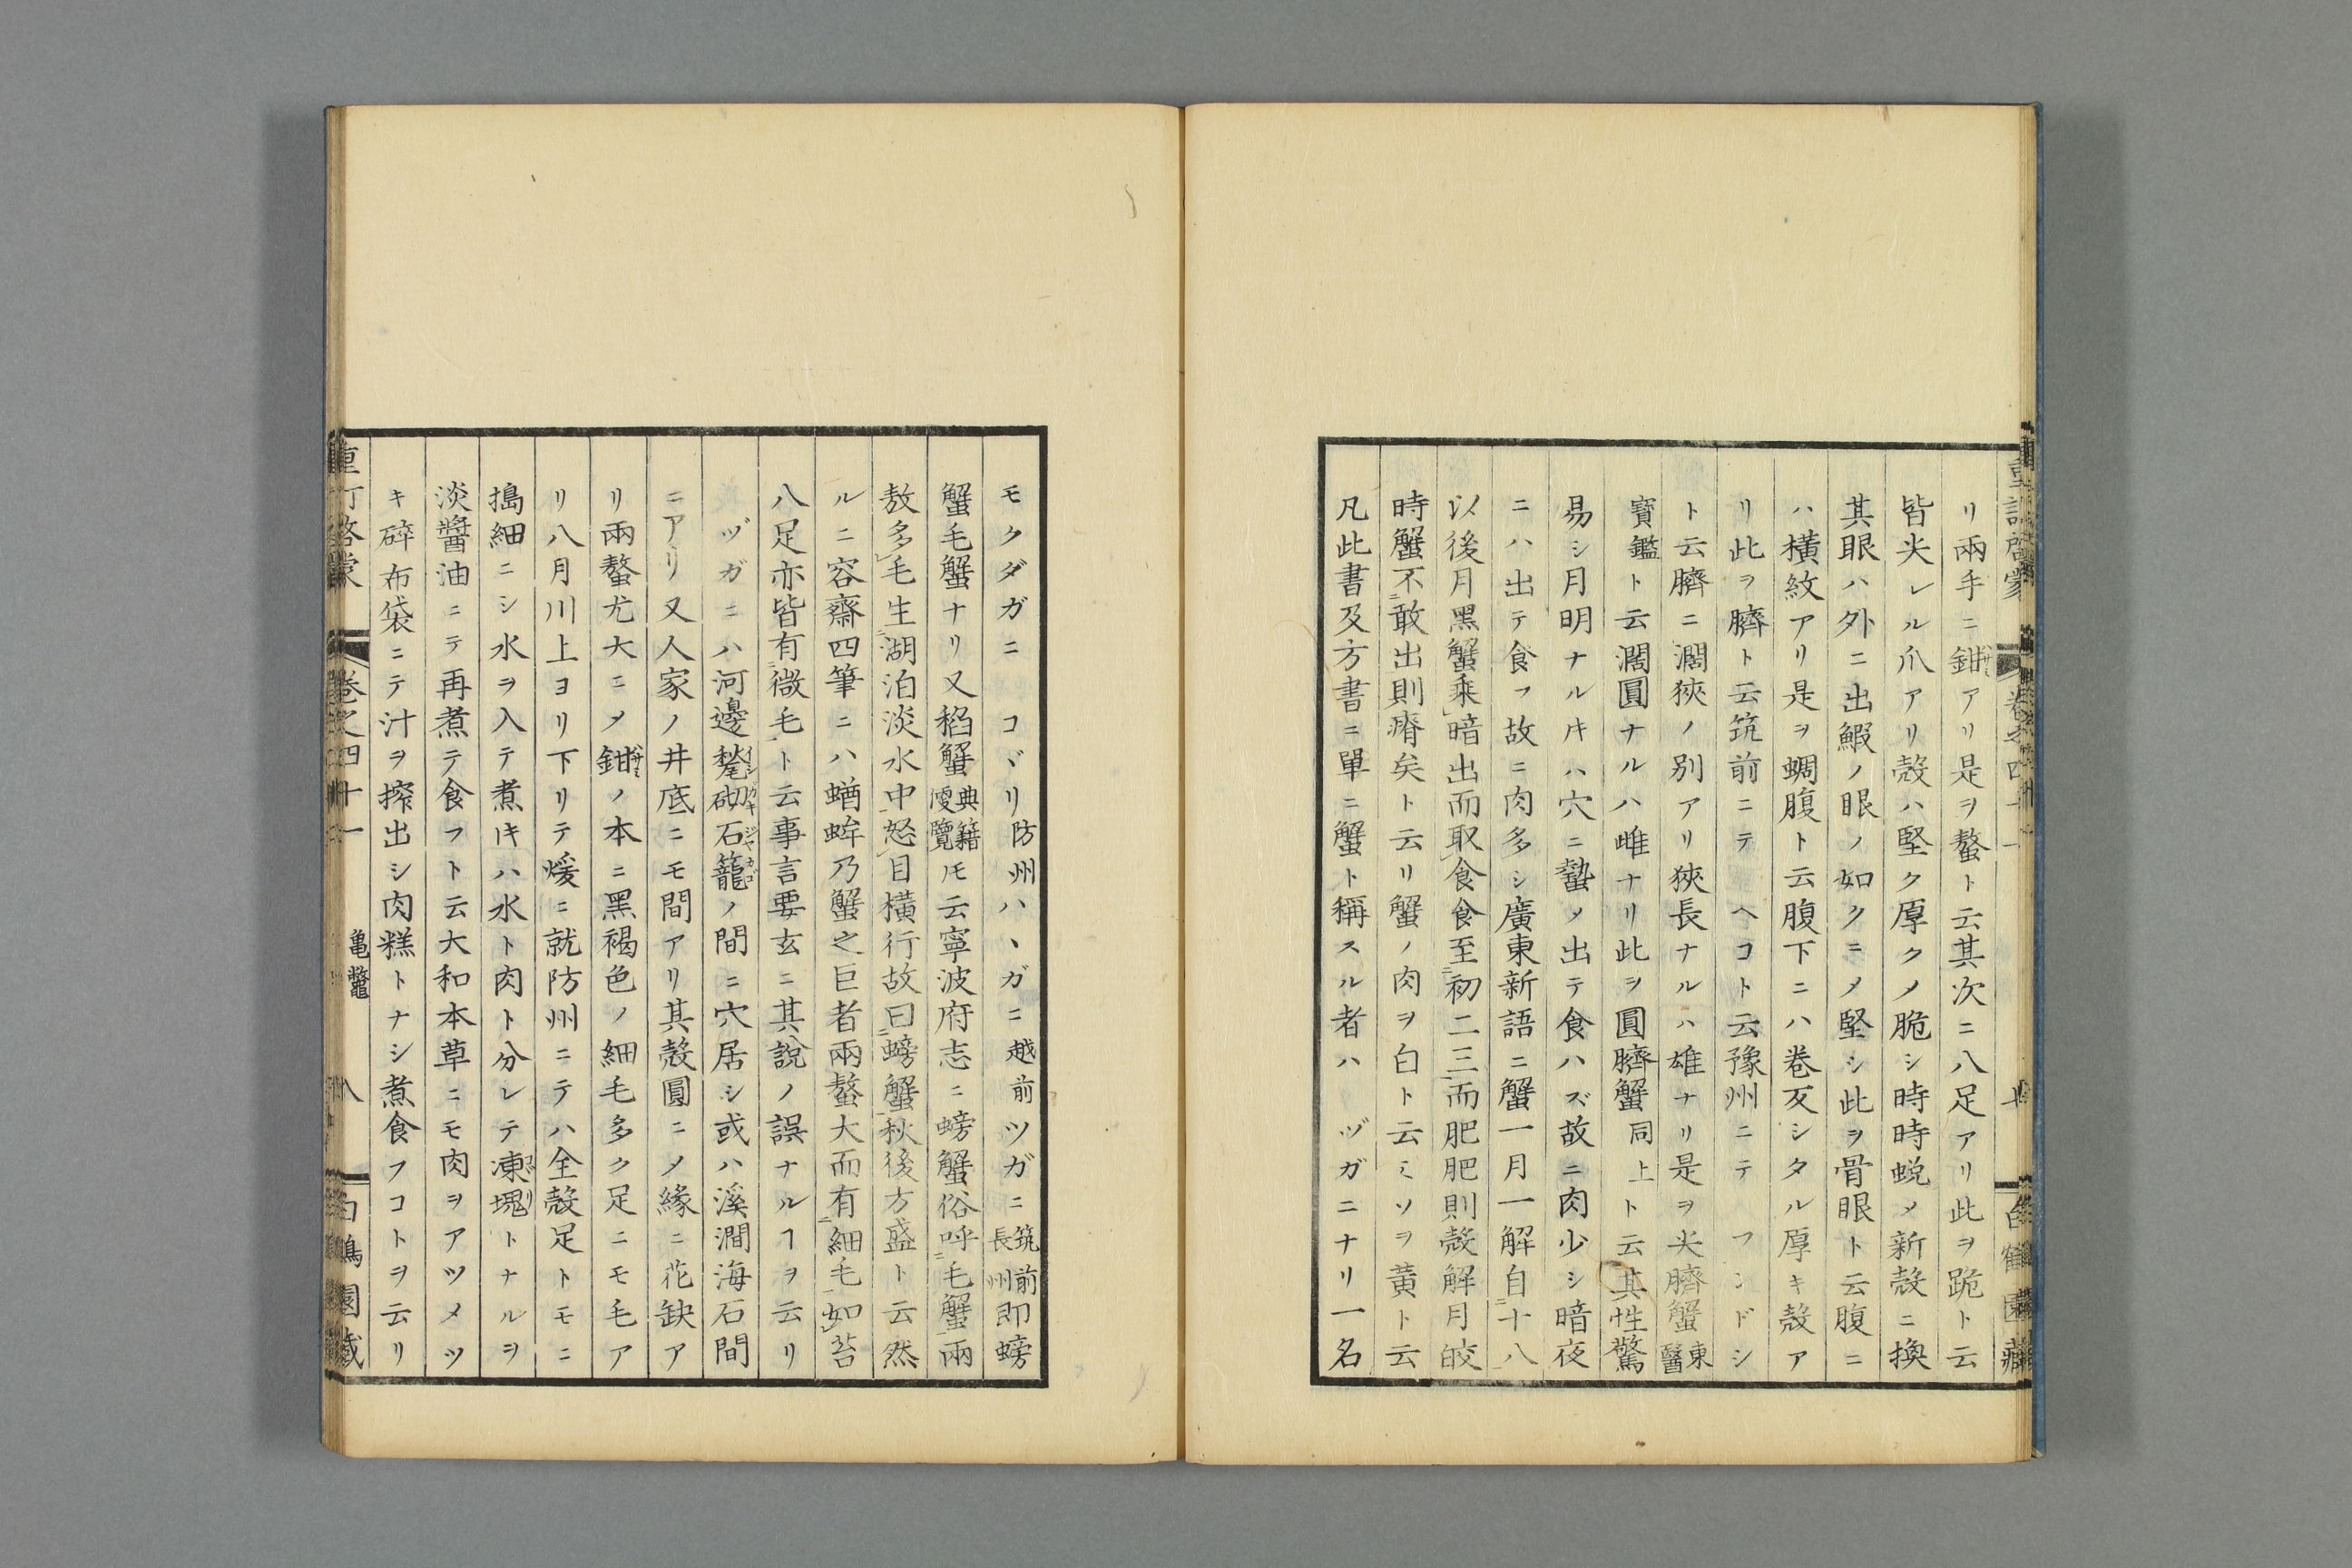 リ兩手ニ鉗アリ是ヲ螯ト云其次ニ八足アリ此ヲ跪ト云
皆尖レル爪アリ殻ハ堅ク厚クメ脆シ時時蜕メ新殻ニ換
其眼ハ外ニ出鰕ノ眼ノ如クニメ堅シ此ヲ骨眼ト云腹ニ
ハ横紋アリ是ヲ蜩腹ト云腹下ニハ巻反シタル厚キ殻ア
リ此ヲ臍ト云筑前ニテ ヘコト云豫州ニテ フンドシ
ト云臍ニ濶狹ノ別アリ狹長ナルハ雄ナリ是ヲ尖臍蟹東醫
寳鑑ト云濶圓ナルハ雌ナリ此ヲ圓臍蟹同上ト云其性驚
易シ月明ナルキハ穴ニ蟄メ出テ食ハズ故ニ肉少シ暗夜
ニハ出テ食フ故ニ肉多シ廣東新語ニ蟹一月一解自十八
以後月黒蟹乘暗出而取食食至初二三而肥肥則殻解月皎
時蟹不敢出則瘠矣ト云リ蟹ノ肉ヲ白ト云ミソヲ黄ト云
凡此書及方書ニ單ニ蟹ト稱スル者ハ ヅガニナリ一名
モクダガニ コヾリ防州ハヽガニ越前ツガニ筑前長州即螃
蟹毛蟹ナリ又稻蟹典籍便覽𪜈云寧波府志ニ螃蟹俗呼毛蟹兩
敖多毛生湖泊淡水中怒目横行故曰螃蟹秋後方盛ト云然
ルニ容齋四筆ニハ蝤蛑乃蟹之巨者兩螯大而有細毛如苔
八足亦皆有微毛ト云事言要玄ニ其說ノ誤ナルヿヲ云リ
ヅガニハ河邊甃砌イシガキ石籠ジヤカゴノ間ニ穴居シ或ハ溪澗海石間
ニアリ又人家ノ井底ニモ間アリ其殻圓ニメ縁ニ花缺ア
リ兩螯尤大ニメ鉗ノ本ニ黒褐色ノ細毛多ク足ニモ毛ア
リ八月川上ヨリ下リテ煖ニ就防州ニテハ全殻足トモニ
搗細ニシ水ヲ入テ煮キハ水ト肉ト分レテ凍塊トナルヲ
淡醬油ニテ再煮テ食フト云大和本草ニモ肉ヲアツメツ
キ碎布袋ニテ汁ヲ搾出シ肉糕トナシ煮食フコトヲ云リ
重訂啓蒙 巻之四十一 亀鼈 八